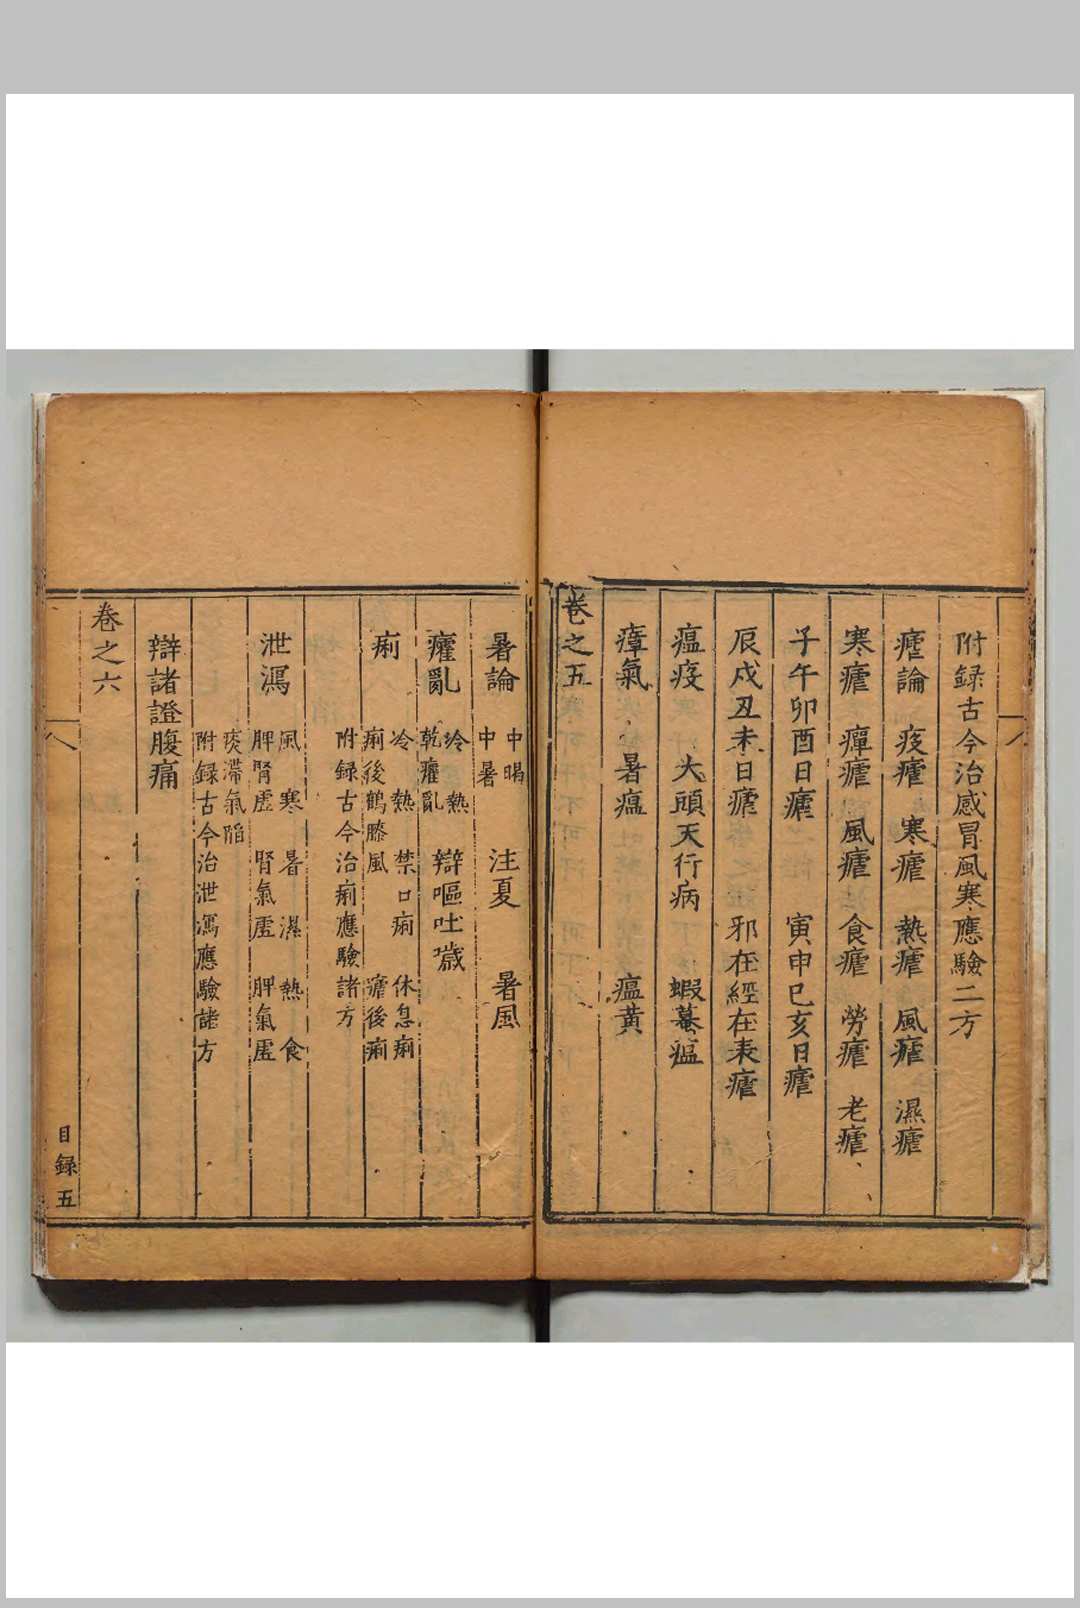 附録古今治感冒風寒應驗二方
瘧論 痎瘧 寒瘧 熱瘧 風瘧 濕瘧
寒瘧 癉瘧 風瘧 食瘧 勞瘧 老瘧
子午卯酉日瘧 寅申巳亥日瘧
辰戌丑未日瘧 邪在經在表瘧
瘟疫 大頭天行病 蝦蟇瘟
瘴氣 暑瘟 瘟黃
卷之五
暑論 中暍 中暑 注夏 暑風
癨亂 冷熱 乾癨亂 辯嘔吐噦
痢 冷熱 禁口痢 休息痢
痢後鶴膝風 瘧後痢
附録古今治痢應驗諸方
泄瀉 風 寒 暑 濕 熱 食
脾腎虛 腎氣虛 脾氣虛
痰滯氣陷
附録古今治泄瀉應驗諸方
辯諸證腹痛
卷之六
目録五